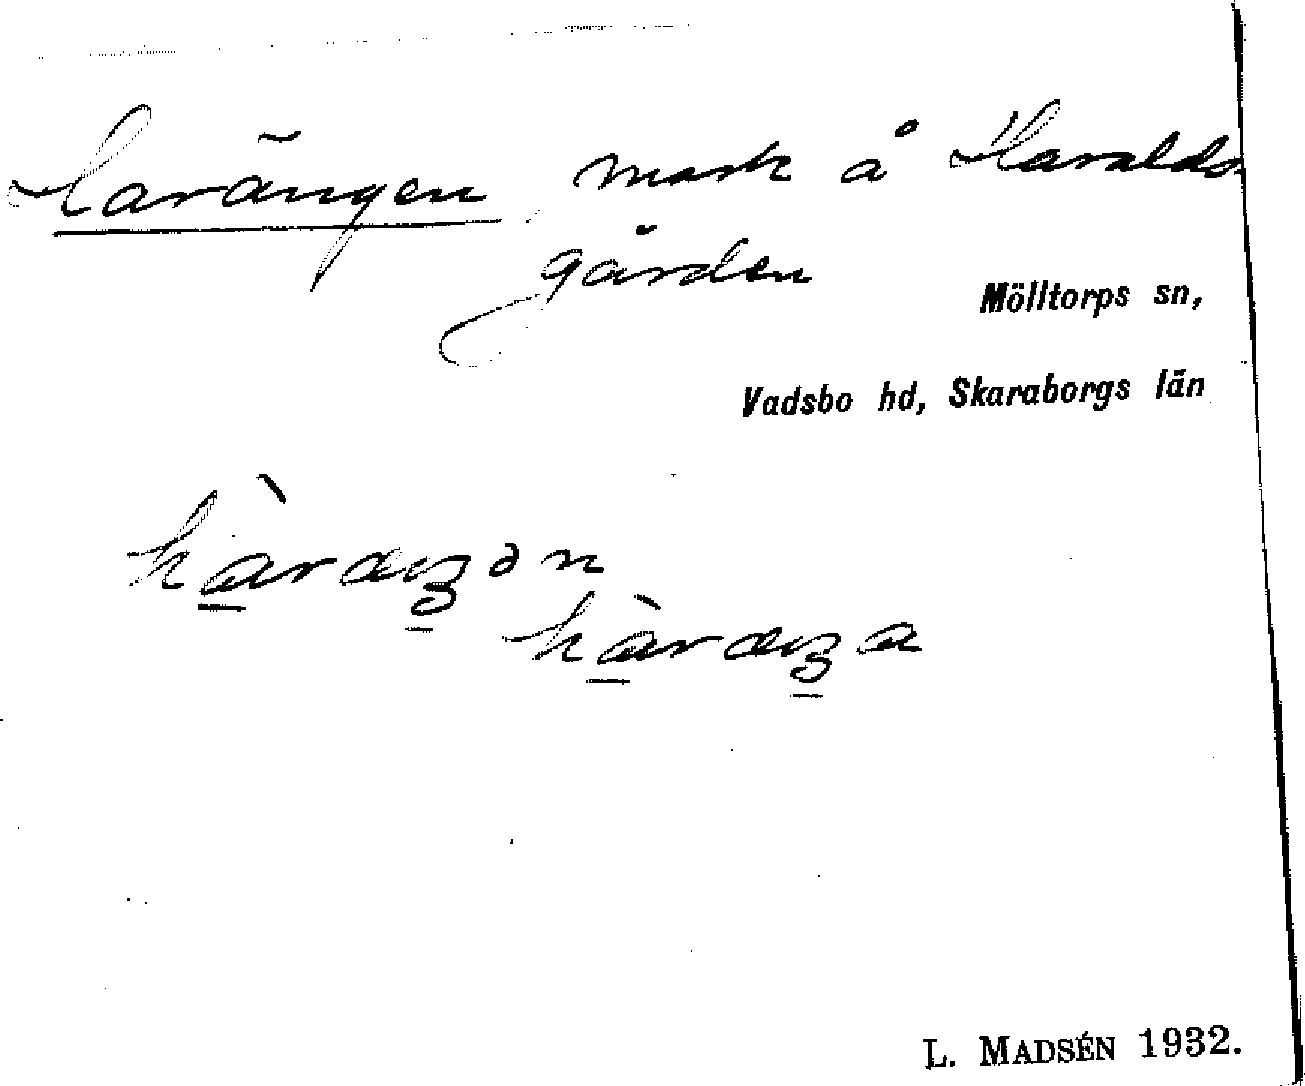 Harängen mark å Haralds
gården
Mölltorps sn,
Vadsbo hd, Skaraborgs län
L. MADSÉN 1932.